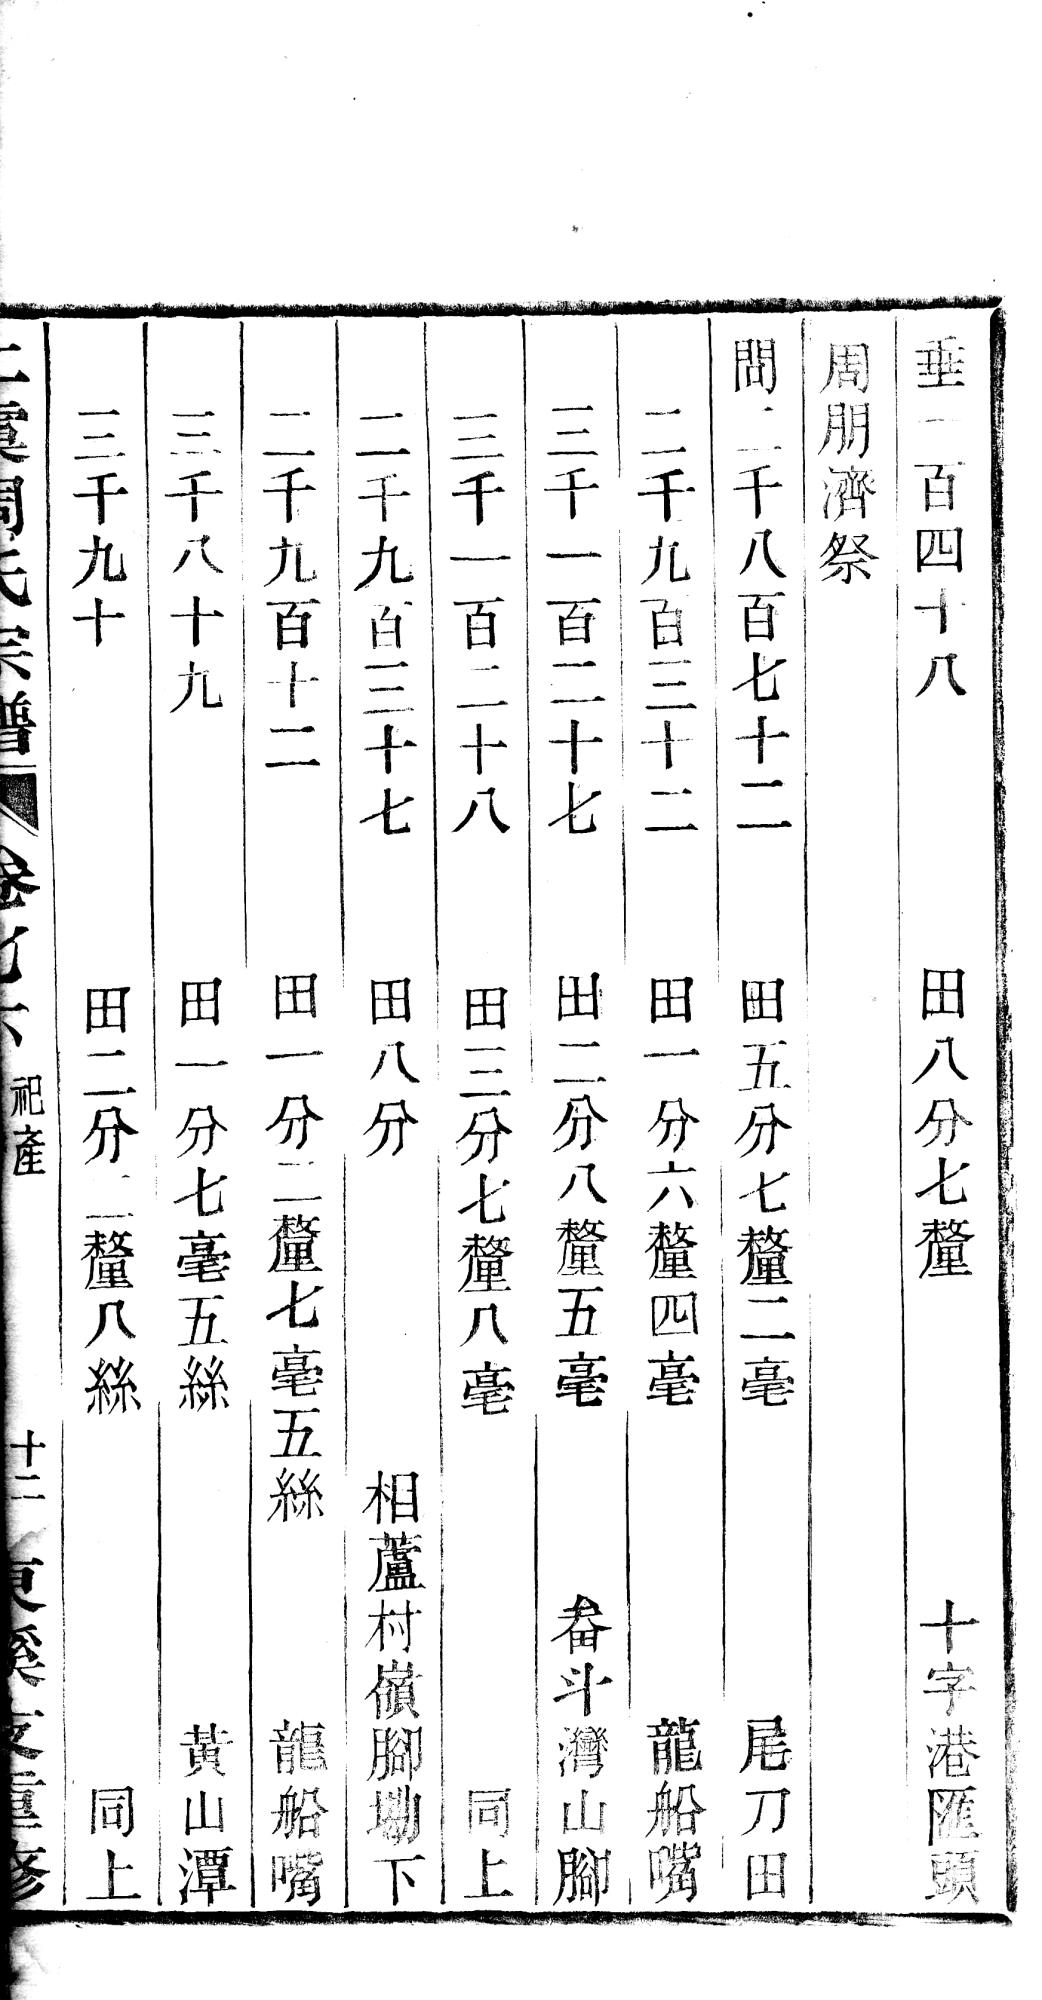 垂一百四十八　田八分七釐　十字港匯頭
周朋濟祭
問二千八百七十二　田五分七釐二毫　尾刀田
二千九百三十二　田一分六釐四毫　龍船嘴
三千一百二十七　田二分八釐五毫　畚斗灣山腳
三千一百二十八　田三分七釐八毫　同上
二千九百三十七　田八分　相蘆村嶺腳墈下
二千九百十二　田一分二釐七毫五絲　龍船嘴
三千八十九　田一分七毫五絲　黃山潭
三千九十　田二分二釐八絲　同上
上虞周氏宗譜　卷七六　祀產　十二　東溪支重修